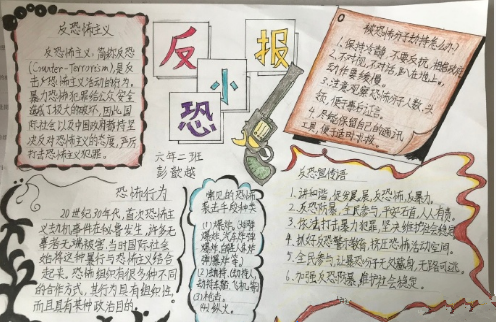 反恐怖主义
反恐怖主义，简称反恐
(Counter-Terrorism),是反
击恐怖主义活动的行为。
暴力恐怖犯罪给公众安全
造成了极大的破坏，因此国
际社会以及中国政府都持坚
决反对恐怖主义的态度，严厉
打击恐怖主义犯罪。
反恐小报
六年二班
彭歆越
被恐怖分子劫持怎么办？
1.保持冷静，不要反抗，相信政府
2.不对视，不对话，趴在地上，
动作要缓慢。
3.注意观察恐怖分子人数，头
领，便于事后证告。
4.尽可能保留自己的通讯
工具，便于适时求报。
恐怖行为
20世纪30年代，首次恐怖主
义劫机事件在秘鲁发生，许多无
辜者无端被害，当时国际社会
始将这种暴行与恐怖主义结合
起来。恐怖组织有很多种不同
的合作方式，其行为具有组织性，
而且具有某种政治目的。
常见的恐怖
袭击手段种类
(1)爆炸，
爆炸，汽车炸弹
爆炸，自杀人体炸
弹爆炸等。
(2)劫持，(劫持人，
劫持车船，飞机等)
(3)枪击。
(4)纵火。
反恐宣传语
1.讲和谐，促发展，反恐怖，反暴力。
2.反恐防暴，全民参与，平安石首，人人有责。
3.依法打击暴力犯罪，坚决维护社会稳定
4.抓好反恐警示教育，挤压恐怖活动空间。
5.全民参与，让暴恐分子无处藏身，无路可逃。
6.加强反恐防暴，维护社会稳定。